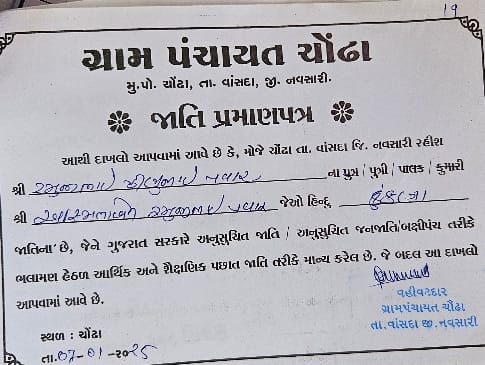 19
ગ્રામ પંચાયત ચોંઢા
મુ.પો. ચોંઢા, તા. વાંસદા, જી. નવસારી.
જાતિ પ્રમાણપત્ર
આથી દાખલો આપવામાં આવે છે કે, મોજે ચોંઢા તા. વાંસદા જિ. નવસારી રહીશ
શ્રી પવાર ના પુત્ર / પુત્રી / પાલક / કુમારી
શ્રી પવાર જેઓ હિન્દુ કુંકણા
જાતિના છે, જેને ગુજરાત સરકારે અનુસુચિત જાતિ / અનુસુચિત જનજાતિ/બક્ષીપંચ તરીકે
ભલામણ હેઠળ આર્થિક અને શૈક્ષણિક પછાત જાતિ તરીકે માન્ય કરેલ છે. જે બદલ આ દાખલો
આપવામાં આવે છે.
વહીવટદાર
ગ્રામપંચાયત ચોંઢા
તા.વાંસદા જી.નવસારી
સ્થળ : ચોંઢા
તા.07-01-૨૦25